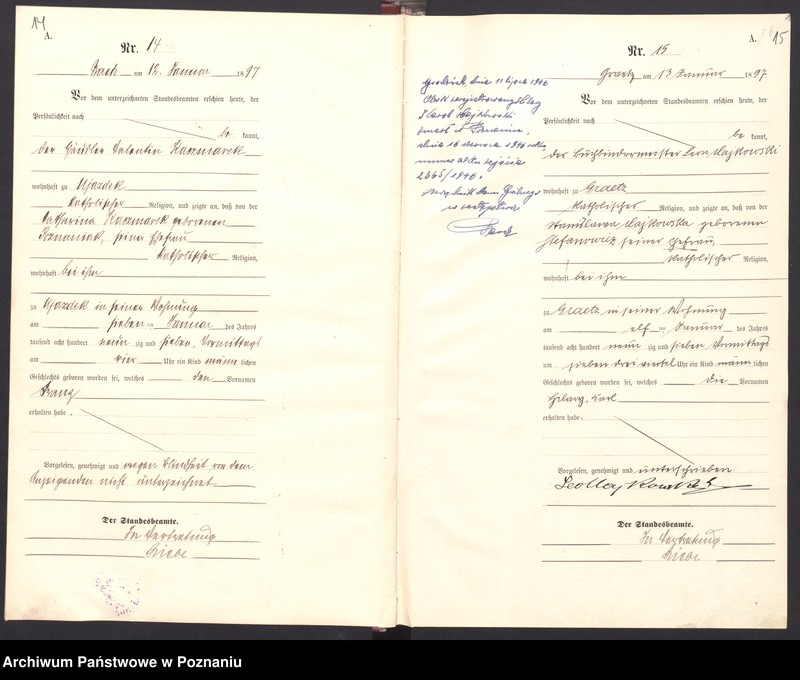 14
A.
Nr. 14
am 12. Januar 1897
Vor dem unterzeichneten Standesbeamten erschien heute, der
Persönlichkeit nach
be kannt,
der Häusler Valentin Kaczmarek
wohnhaft zu Ujazdek
katholischer Religion, und zeigte an, daß von der
Katharina Kaczmarek geborenen
Poznaniak, seiner Ehefrau
katholischer Religion,
wohnhaft bei ihm
zu Ujazdek in seiner Wohnung
am sieben ten Januar des Jahres
tausend acht hundert neun zig und sieben, Vormittags
um vier Uhr ein Kind männ lichen
Geschlechts geboren worden sei, welches den Vornamen
Franz
erhalten habe.
Vorgelesen, genehmigt und wegen Blindheit von dem
Anzeigenden nicht unterzeichnet
Der Standesbeamte.
In Vertretung
A. 15
Nr. 15
Graetz am 13 Januar 1897
Vor dem unterzeichneten Standesbeamten erschien heute, der
Persönlichkeit nach
be kannt,
der Buchbindermeister Leon Majkowski
wohnhaft zu Graetz
katholischer Religion, und zeigte an, daß von der
Stanislawa Majkowska geborenen
Stefanowicz seiner Ehefrau,
katholischer Religion,
wohnhaft bei ihm
zu Graetz in seiner Wohnung
am elf ten Januar des Jahres
tausend acht hundert neun zig und sieben Vormittags
um sieben drei viertel Uhr ein Kind männ lichen
Geschlechts geboren worden sei, welches die Vornamen
Hilary, Karl
erhalten habe.
Vorgelesen, genehmigt und unterschrieben
Leo Majkowski
Der Standesbeamte.
In Vertretung
1946
2665/1946.
Archiwum Państwowe w Poznaniu